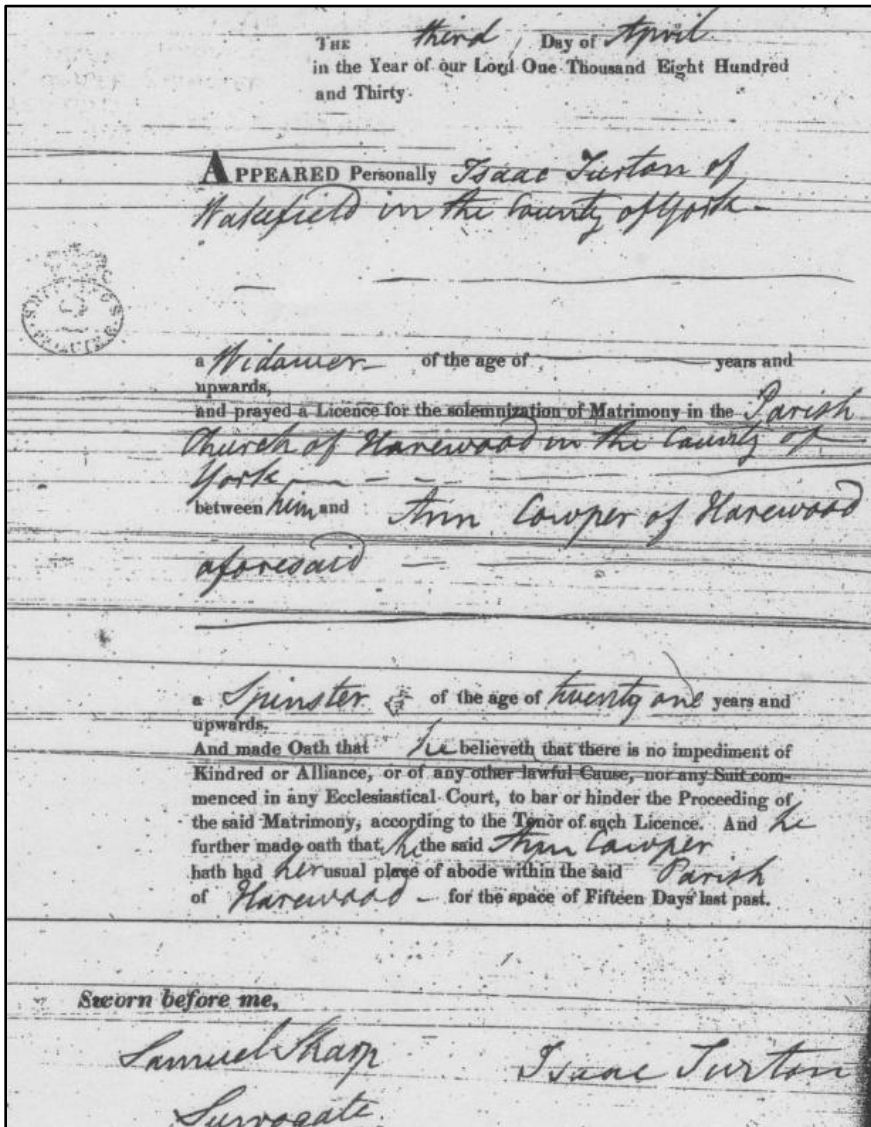 THE third Day of April
in the Year of our Lord One Thousand Eight Hundred
and Thirty
APPEARED Personally Isaac Turton of
Wakefield in the County of York
a Widower of the age of years and
upwards,
and prayed a Licence for the solemnization of Matrimony in the Parish
Church of Harewood in the County of
York
between him and Ann Cowper of Harewood
aforesaid
a Spinster of the age of twenty one years and
upwards.
And made Oath that he believeth that there is no impediment of
Kindred or Alliance, or of any other lawful Cause, nor any Suit com-
menced in any Ecclesiastical Court, to bar or hinder the Proceeding of
the said Matrimony, according to the Tenor of such Licence. And he
further made oath that he the said Ann Cowper
hath had her usual place of abode within the said Parish
of Harewood – for the space of Fifteen Days last past.
Sworn before me,
Samuel Sharp Isaac Turton
Surrogate